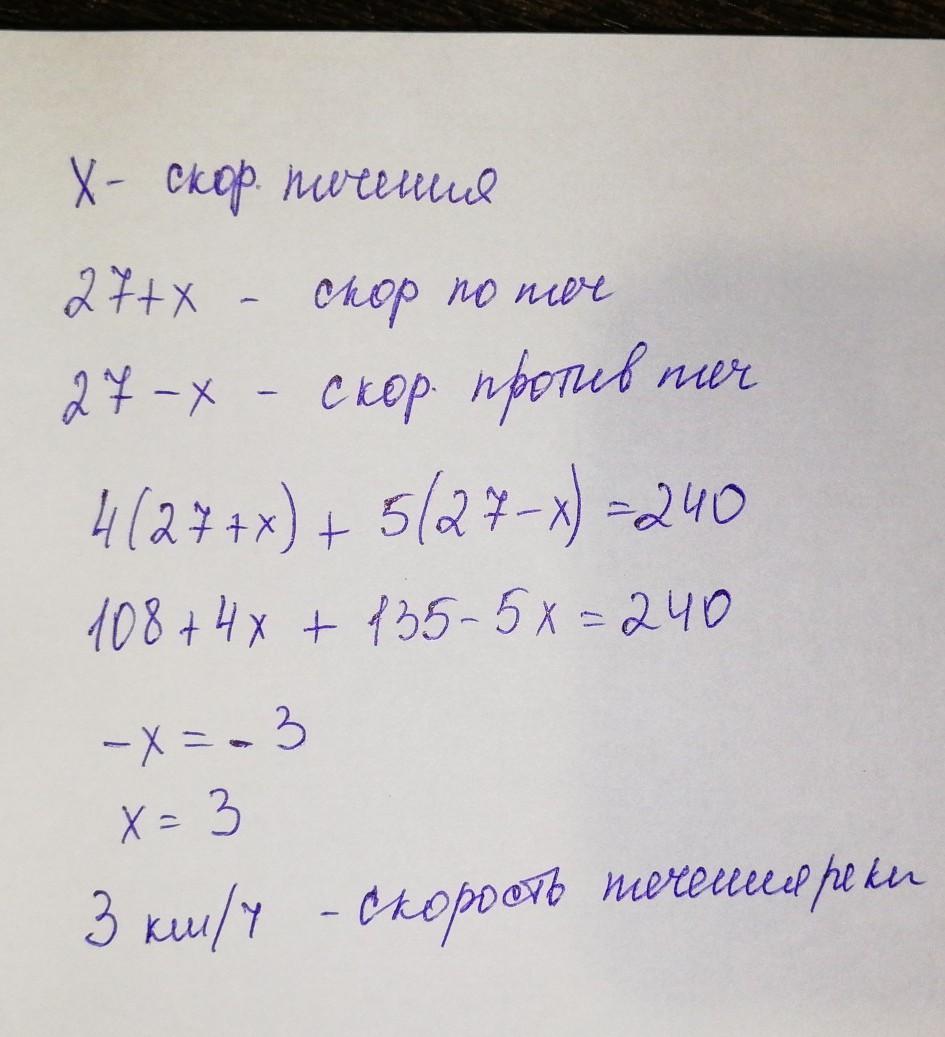 x - скор. течения
27+x - скор по теч
27-x - скор. против теч
4(27+x) + 5(27-x) =240
108+4x + 135-5x = 240
-x = - 3
x = 3
3 км/ч - скорость течения реки